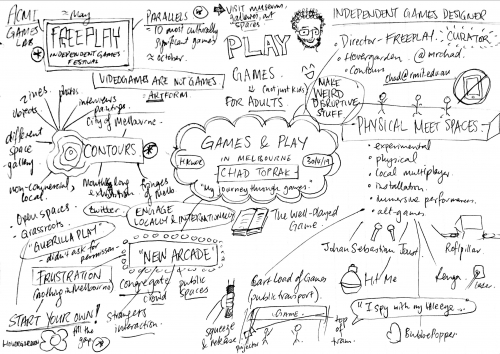 ACMI
GAMES
LAB
May
FREEPLAY
INDEPENDENT GAMES
FESTIVAL
PARALLELS
10 most culturally
significant games
october.
VISIT MUSEUMS,
galleries, art
spaces
PLAY
INDEPENDENT GAMES DESIGNER
Director - FREEPLAY.
CURATOR
Hovergarden.
@mrchad.
chad@rmit.edu.au
VIDEOGAMES ARE NOT GAMES
ARTFORM.
GAMES
not just kids
FOR ADULTS
MAKE
WEIRD
DISRUPTIVE
STUFF
zines,
photos
objects
interviews
paintings
City of Melbourne
different
space
gallery
CONTOURS
non-commercial
local.
Month long
exhibition
GAMES & PLAY
IN MELBOURNE
CHAD TOPRAK
30/4/19
"my journey through games"
PHYSICAL MEET SPACES
experimental
physical
local multiplayer.
installation.
immersive performance.
alt-games
Open spaces
Grassroots
twitter
ENGAGE
LOCALLY & INTERNATIONALLY
The Well-Played
Game.
"GUERILLA PLAY"
didn't ask for
permission
"NEW ARCADE"
Johan Sebastian Joust
Hit Me
laser.
FRUSTRATION
(nothing in Melbourne)
congregate
crowd
public
spaces
Cart Load of Games
(public transport)
GAME
top of
tram.
projector
"I spy with my
BubblePopper
START YOUR OWN!
HOVERGARDEN
fill the
gap
strangers
interaction.
squeeze
& release